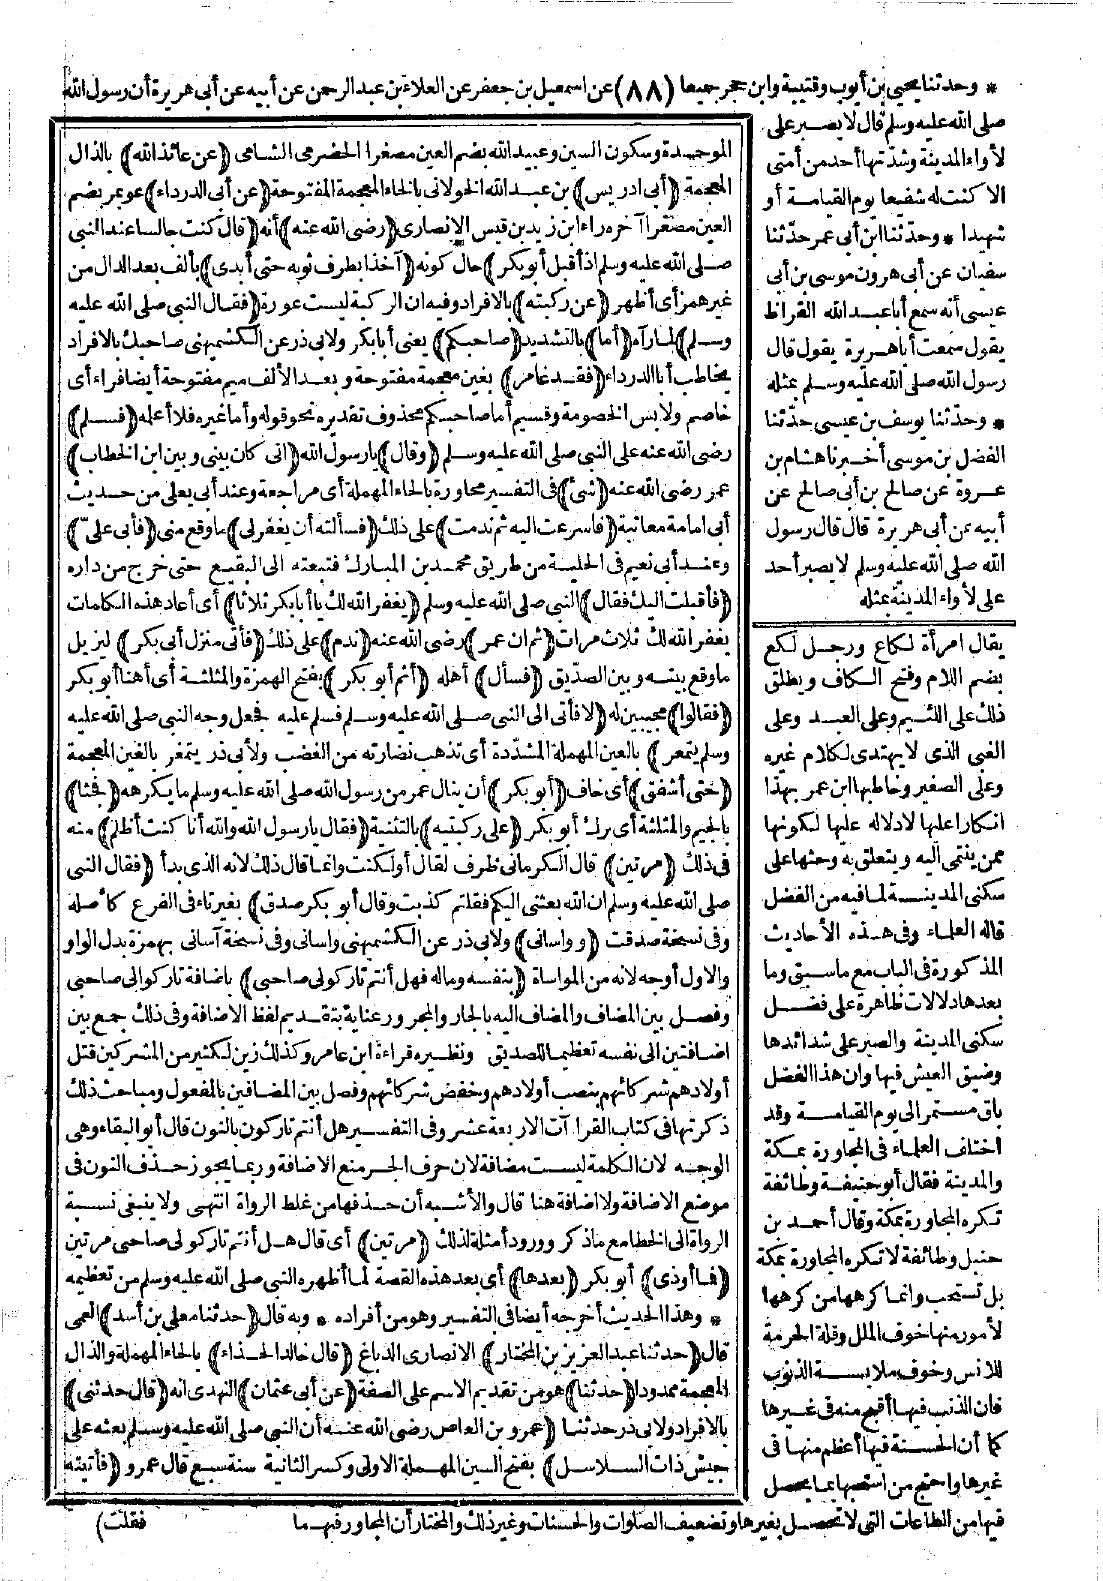 * وحدثنا يحيى بن أيوب وقتيبة وابن حجر جميعا (٨٨) عن اسمعيل بن جعفر عن العلاء بن عبد الرحمن عن أبيه عن أبى هريرة أن رسول الله
صلى الله عليه وسلم قال لا يصبر على
لأواء المدينة وشدتها أحد من أمتى
الا كنت له شفيعا يوم القيامة أو
شهيدا * وحدثنا ابن أبى عمر حدّثنا
سفيان عن أبى هرون موسى بن أبى
عيسى أنه سمع أبا عبد الله القراظ
يقول سمعت أبا هريرة يقول قال
رسول الله صلى الله عليه وسلم بمثله
* وحدّثنا يوسف بن عيسى حدّثنا
الفضل بن موسى أخبرنا هشام بن
عروة عن صالح بن أبى صالح عن
أبيه عن أبى هريرة قال قال رسول
الله صلى الله عليه وسلم لا يصبر أحد
على لأواء المدينة بمثله
يقال امرأة لكاع ورجل لكع
بضم اللام وفتح الكاف ويطلق
ذلك على اللئيم وعلى العبد وعلى
الغبى الذى لا يهتدى لكلام غيره
وعلى الصغير وخاطبها ابن عمر بهذا
انكارا عليها لادلاله عليها لكونها
ممن ينتمى اليه ويتعلق به وحثها على
سكنى المدينة لما فيه من الفضل
قاله العلماء وفى هذه الأحاديث
المذكورة فى الباب مع ما سبق وما
بعدها دلالات ظاهرة على فضل
سكنى المدينة والصبر على شدائدها
وضيق العيش فيها وان هذا الفضل
باق مستمر الى يوم القيامة وقد
اختلف العلماء فى المجاورة بمكة
والمدينة فقال أبو حنيفة وطائفة
تكره المجاورة بمكة وقال أحمد بن
حنبل وطائفة لا تكره المجاورة بمكة
بل تستحب وانما كرهها من كرهها
لأمور منها خوف الملل وقلة الحرمة
للانس وخوف ملابسة الذنوب
فان الذنب فيها أقبح منه فى غيرها
كما أن الحسنة فيها أعظم منها فى
غيرها واحتج من استحبها بما يحصل
فيها من الطاعات التى لا تحصل بغيرها وتضعيف الصلوات والحسنات وغير ذلك والمختار أن المجاورة فيهما
الموحدة وسكون السين وعبيد الله بضم العين مصغرا الحضرمى الشامى (عن عائذ الله) بالذال
المعجمة (أبى ادريس) بن عبد الله الخولانى بالخاء المعجمة المفتوحة (عن أبى الدرداء) عويمر بضم
العين مصغرا آخره راء ابن زيد بن قيس الانصارى (رضى الله عنه) أنه (قال كنت جالسا عند النبى
صلى الله عليه وسلم اذ أقبل أبو بكر) حال كونه (آخذا بطرف ثوبه حتى أبدى) بألف بعد الدال من
غير همز أى أظهر (عن ركبته) بالافراد وفيه ان الركبة ليست عورة (فقال النبى صلى الله عليه
وسلم) لما رآه (أما) بالتشديد (صاحبكم) يعنى أبا بكر ولابى ذر عن الكشميهنى صاحبك بالافراد
يخاطب أبا الدرداء (فقد غامر) بغين معجمة مفتوحة وبعد الألف ميم مفتوحة أيضا فراء أى
خاصم ولابس الخصومة وقسيم أما صاحبكم محذوف تقديره نحو قوله وأما غيره فلا أعلمه (فسلم)
رضى الله عنه على النبى صلى الله عليه وسلم (وقال) يا رسول الله (انى كان بينى وبين ابن الخطاب)
عمر رضى الله عنه (شئ) فى التفسير محاورة بالحاء المهملة أى مراجعة وعند أبى يعلى من حديث
أبى امامة معاتبة (فاسرعت اليه ثم ندمت) على ذلك (فسألته أن يغفر لى) ما وقع منى (فأبى علىّ)
وعند أبى نعيم فى الحلية من طريق محمد بن المبارك فتبعته الى البقيع حتى خرج من داره
(فأقبلت اليك فقال) النبى صلى الله عليه وسلم (يغفر الله لك يا أبا بكر ثلاثا) أى أعاد هذه الكلمات
يغفر الله لك ثلاث مرات (ثم ان عمر) رضى الله عنه (ندم) على ذلك (فأتى منزل أبى بكر) ليزيل
ما وقع بينه وبين الصدّيق (فسأل) أهله (أثم أبو بكر) بفتح الهمزة والمثلثة أى أهنا أبو بكر
(فقالوا) مجيبين له (لا فأتى الى النبى صلى الله عليه وسلم فسلم عليه فجعل وجه النبى صلى الله عليه
وسلم يتمعر) بالعين المهملة المشدّدة أى تذهب نضارته من الغضب ولأبى ذر يتمغر بالغين المعجمة
(حتى أشفق) أى خاف (أبو بكر) أن ينال عمر من رسول الله صلى الله عليه وسلم ما يكرهه (فجثا)
بالجيم والمثلثة أى برك أبو بكر (على ركبتيه) بالتثنية (فقال يا رسول الله والله أنا كنت أظلم) منه
فى ذلك (مرتين) قال الكرمانى ظرف لقال أو لكنت وانما قال ذلك لانه الذى بدأ (فقال النبى
صلى الله عليه وسلم ان الله بعثنى اليكم فقلتم كذبت وقال أبو بكر صدق) بغير تاء فى الفرع كأصله
وفى نسخة صدقت (وواسانى) ولابى ذر عن الكشميهنى واسانى وفى نسخة آسانى بهمزة بدل الواو
والاول أوجه لانه من المواساة (بنفسه وماله فهل أنتم تاركو لى صاحبى) باضافة تاركو الى صاحبى
وفصل بين المضاف والمضاف اليه بالجار والمجرور عناية بتقديم لفظ الاضافة وفى ذلك جمع بين
اضافتين الى نفسه تعظيما للصديق ونظيره قراءة ابن عامر وكذلك زين لكثير من المشركين قتل
أولادهم شركائهم بنصب أولادهم وخفض شركائهم وفصل بين المضافين بالمفعول ومباحث ذلك
ذكرتها فى كتاب القراآت الاربعة عشر وفى التفسير هل أنتم تاركون بالنون قال أبو البقاء وهى
الوجه لان الكلمة ليست مضافة لان حرف الجر منع الاضافة وربما يجوز حذف النون فى
موضع الاضافة ولا اضافة هنا قال والأشبه أن حذفها من غلط الرواة انتهى ولا ينبغى نسبة
الرواة الى الخطا مع ما ذكر وورود أمثلة لذلك (مرتين) أى قال هل أنتم تاركو لى صاحبى مرتين
(فما أوذى) أبو بكر (بعدها) أى بعد هذه القصة لما أظهره النبى صلى الله عليه وسلم من تعظيمه
* وهذا الحديث أخرجه أيضا فى التفسير وهو من أفراده * وبه قال (حدثنا معلى بن أسد) العمى
قال (حدثنا عبد العزيز بن المختار) الانصارى الدباغ (قال خالد الحذاء) بالحاء المهملة والذال
المعجمة ممدودا (حدثنا) هو من تقديم الاسم على الصفة (عن أبى عثمان) النهدى انه (قال حدثنى)
بالافراد ولابى ذر حدثنا (عمرو بن العاص رضى الله عنه أن النبى صلى الله عليه وسلم بعثه على
جيش ذات السلاسل) بفتح السين المهملة الاولى وكسر الثانية سنة سبع قال عمرو (فأتيته
فقلت)